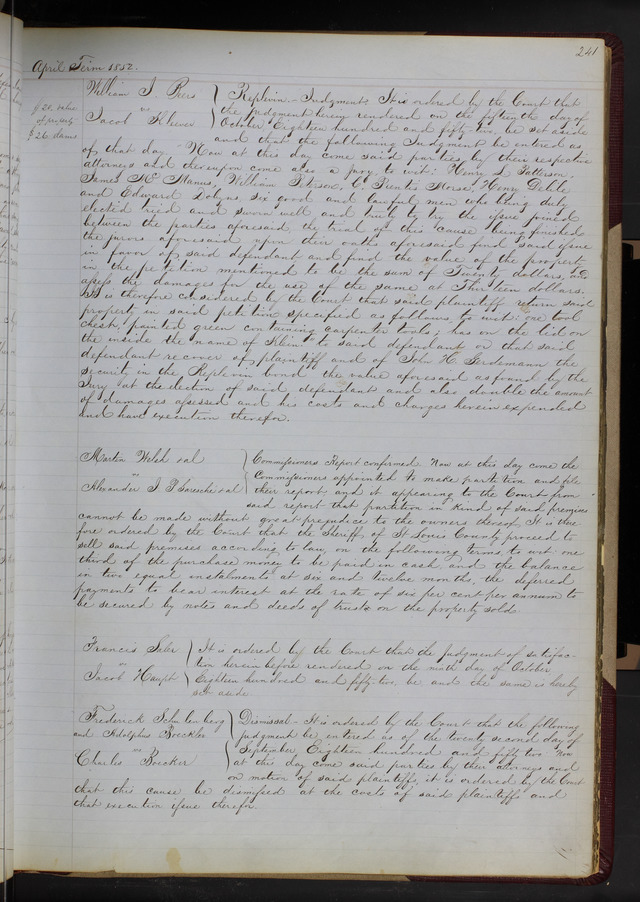 241
April Term 1852.
William J. Rees
vs
Jacob Klein
$20. value
of property
$26. dams
Replevin - Judgment. It is ordered by the Court that
the judgment herein rendered on the fifteenth day of
October, Eighteen hundred and fifty-two, be set aside
and that the following judgment be entered as
of, that day. Now at this day come said parties by their respective
attorneys and thereupon come also a jury to wit: Henry L. Patterson,
James McManus, William Peterson, Prentis Morse, Henry
and Edward six good and lawful men who being duly
elected tried and sworn well and truly to try the issue joined
between the parties aforesaid, the trial of this cause being finished
the jurors aforesaid upon their oaths aforesaid find said issue
in favor of said defendant and find the value of the property
in the petition mentioned to be the sum of Twenty dollars, and
assess the damages for the use of the same at Thirteen dollars.
It is therefore considered by the Court that said plaintiff return said
property in said petition specified as follows to wit: one tool
chest, painted green containing carpenter tools; has on the lid on
the inside the name of Klein to said defendant or that said
defendant recover of plaintiff and of John H. the
security in the Replevin bond the value aforesaid as found by the
Jury at the election of said defendant and also double the amount
of damages assessed and his costs and charges herein expended
and have execution therefor.
Martin Welsh et al
vs
Alexander J. P. et al
Commissioners Report confirmed. Now at this day come the
Commissioners appointed to make partition and file
their report; and it appearing to the Court from
said report that partition in kind of said premises
cannot be made without great prejudice to the owners thereof, It is there
fore ordered by the Court that the Sheriff of St Louis County proceed to
sell said premises according to law, on the following terms, to wit: one
third of the purchase money to be paid in cash and the balance
in two equal instalments at six and twelve months, the deferred
payments to bear interest at the rate of six per cent per annum to
be secured by notes and deeds of trust on the property sold
Francis Saler
vs
Jacob Haupt
It is ordered by the Court that the judgment of satisfac-
tion herein before rendered on the ninth day of October
Eighteen hundred and fifty-two, be, and the same is hereby
set aside
Frederick Schulenberg
and Adolphus Boeckler
vs
Charles Boecker
Dismissal - It is ordered by the Court that the following
judgment be entered as of the twenty second day of
September, Eighteen hundred and fifty two. Now
at this day come said parties by their attorneys and
on motion of said plaintiffs, it is ordered by the Court
that this cause be dismissed at the costs of said plaintiffs and
that execution issue therefor.